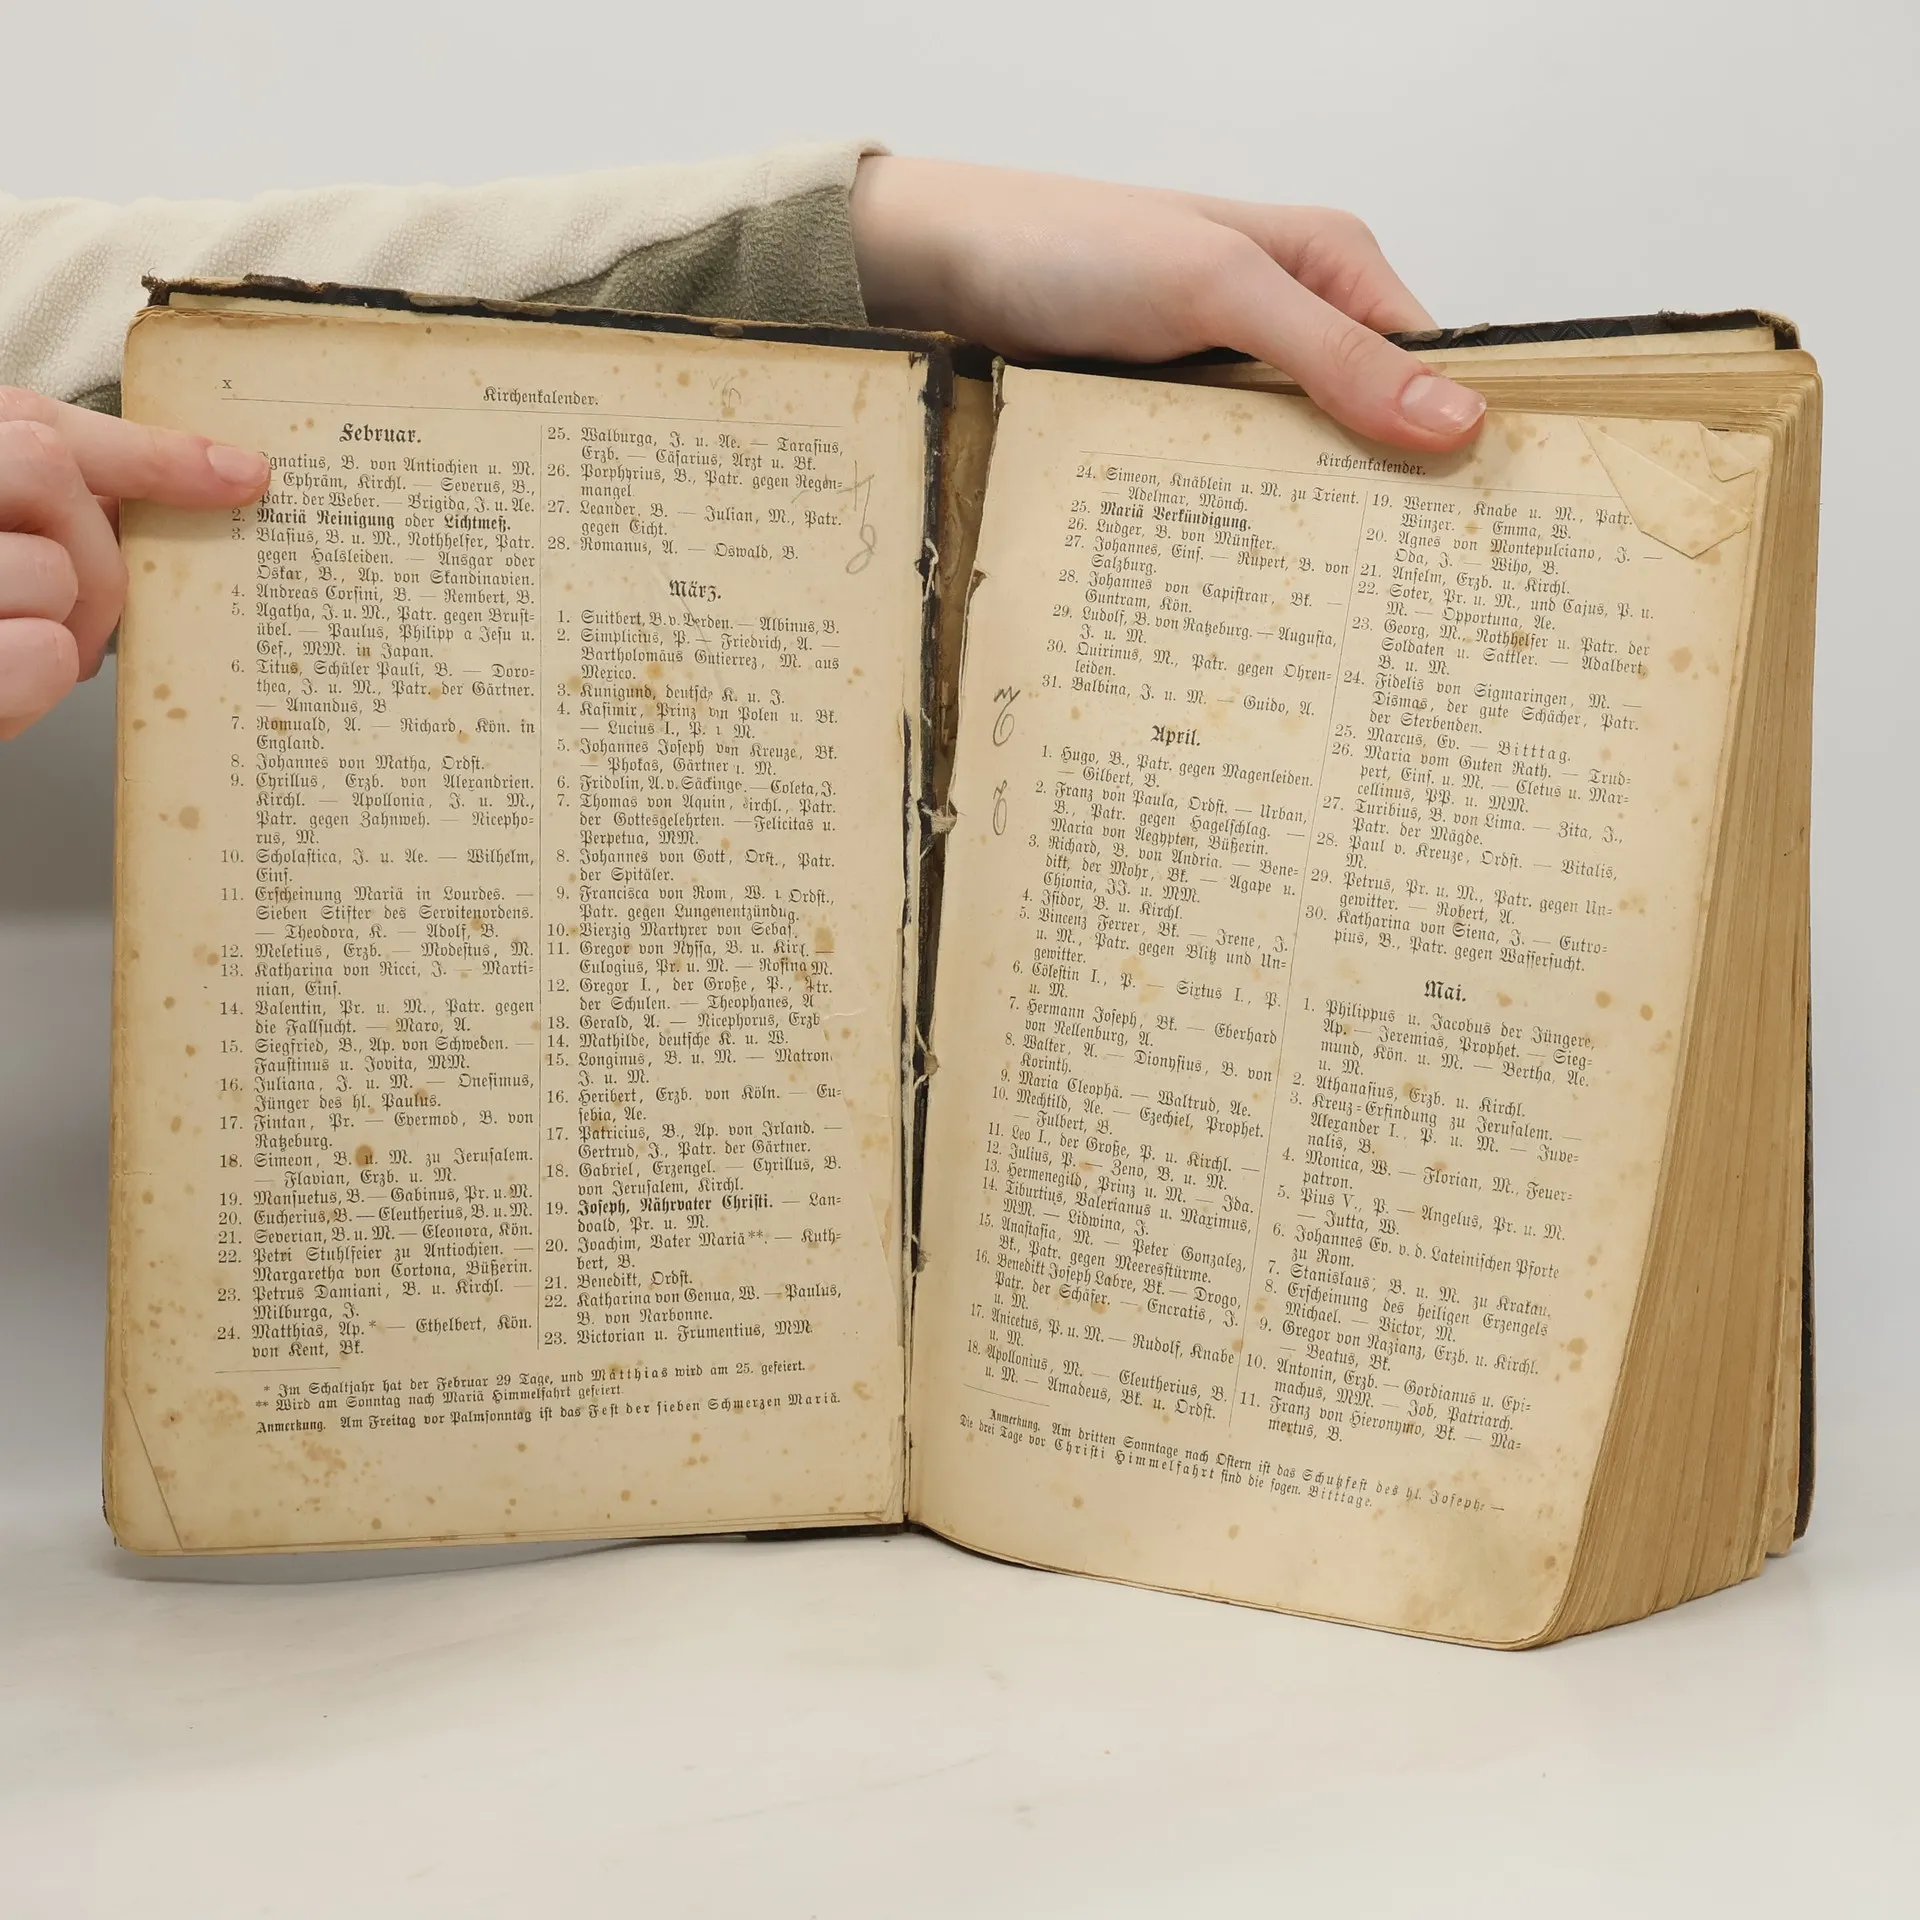 x
Kirchenkalender.
Februar.
gnatius, B. von Antiochien u. M.
— Ephräm, Kirchl. — Severus, B.,
Patr. der Weber. — Brigida, J. u. Ae.
2. Mariä Reinigung oder Lichtmeß.
3. Blasius, B. u. M., Nothhelfer, Patr.
gegen Halsleiden. — Ansgar oder
Oskar, B., Ap. von Skandinavien.
4. Andreas Corsini, B. — Rembert, B.
5. Agatha, J. u. M., Patr. gegen Brust-
übel. — Paulus, Philipp a Jesu u.
Gef., MM. in Japan.
6. Titus, Schüler Pauli, B. — Doro-
thea, J. u. M., Patr. der Gärtner.
— Amandus, B
7. Romuald, A. — Richard, Kön. in
England.
8. Johannes von Matha, Ordst.
9. Cyrillus, Erzb. von Alexandrien.
Kirchl. — Apollonia, J. u. M.,
Patr. gegen Zahnweh. — Nicepho-
rus, M.
10. Scholastica, J. u. Ae. — Wilhelm,
Eins.
11. Erscheinung Mariä in Lourdes. —
Sieben Stifter des Servitenordens.
— Theodora, K. — Adolf, B.
12. Meletius, Erzb. — Modestus, M.
13. Katharina von Ricci, J. — Marti-
nian, Eins.
14. Valentin, Pr. u. M., Patr. gegen
die Fallsucht. — Maro, A.
15. Siegfried, B., Ap. von Schweden. —
Faustinus u. Jovita, MM.
16. Juliana, J. u. M. — Onesimus,
Jünger des hl. Paulus.
17. Fintan, Pr. — Evermod, B. von
Ratzeburg.
18. Simeon, B. u. M. zu Jerusalem.
— Flavian, Erzb. u. M.
19. Mansuetus, B. — Gabinus, Pr. u. M.
20. Eucherius, B. — Eleutherius, B. u. M.
21. Severian, B. u. M. — Eleonora, Kön.
22. Petri Stuhlfeier zu Antiochien. —
Margaretha von Cortona, Büßerin.
23. Petrus Damiani, B. u. Kirchl. —
Milburga, J.
24. Matthias, Ap.* — Ethelbert, Kön.
von Kent, Bk.
25. Walburga, J. u. Ae. — Tarasius,
Erzb. — Cäsarius, Arzt u. Bk.
26. Porphyrius, B., Patr. gegen Regen-
mangel
27. Leander, B. — Julian, M., Patr.
gegen Gicht.
28. Romanus, A. — Oswald, B.
März.
1. Suitbert, B. v. Verden. — Albinus, B.
2. Simplicius, P. — Friedrich, A. —
Bartholomäus Gutierrez, M. aus
Mexico.
3. Kunigund, deutsche K. u. J.
4. Kasimir, Prinz von Polen u. Bk.
— Lucius I., P. u M.
5. Johannes Joseph von Kreuze, Bk.
— Phokas, Gärtner u. M.
6. Fridolin, A. v. Säckinge. — Coleta, J.
7. Thomas von Aquin, irchl., Patr.
der Gottesgelehrten. — Felicitas u.
Perpetua, MM.
8. Johannes von Gott, Orst., Patr.
der Spitäler.
9. Francisca von Rom, W. u Ordst.,
Patr. gegen Lungenentzündug.
10. Vierzig Martyrer von Sebas.
11. Gregor von Nyssa, B. u. Kirl. —
Eulogius, Pr. u. M. — Rosina M.
12. Gregor I., der Große, P., Ptr.
der Schulen. — Theophanes, A
13. Gerald, A. — Nicephorus, Erzb
14. Mathilde, deutsche K. u. W.
15. Longinus, B. u. M. — Matron.
J. u. M.
16. Heribert, Erzb. von Köln. — Eu-
sebia, Ae.
17. Patricius, B., Ap. von Irland. —
Gertrud, J., Patr. der Gärtner.
18. Gabriel, Erzengel. — Cyrillus, B.
von Jerusalem, Kirchl.
19. Joseph, Nährvater Christi. — Lan-
doald, Pr. u. M.
20. Joachim, Vater Mariä**. — Kuth-
bert, B.
21. Benedikt, Ordst.
22. Katharina von Genua, W. — Paulus,
B. von Narbonne.
23. Victorian u. Frumentius, MM.
* Im Schaltjahr hat der Februar 29 Tage, und Matthias wird am 25. gefeiert.
** Wird am Sonntag nach Mariä Himmelfahrt gefeiert.
Anmerkung. Am Freitag vor Palmsonntag ist das Fest der sieben Schmerzen Mariä.
Kirchenkalender.
24. Simeon, Knäblein u. M. zu Trient.
— Adelmar, Mönch.
25. Mariä Verkündigung.
26. Ludger, B. von Münster.
27. Johannes, Eins. — Rupert, B. von
Salzburg.
28. Johannes von Capistran, Bk. —
Guntram, Kön.
29. Ludolf, B. von Ratzeburg. — Augusta,
J. u. M.
30. Quirinus, M., Patr. gegen Ohren-
leiden.
31. Balbina, J. u. M. — Guido, A.
April.
1. Hugo, B., Patr. gegen Magenleiden.
— Gilbert, B.
2. Franz von Paula, Ordst. — Urban,
B., Patr. gegen Hagelschlag. —
Maria von Aegypten, Büßerin.
3. Richard, B. von Andria. — Bene-
dikt, der Mohr, Bk. — Agape u.
Chionia, JJ. u. MM.
4. Isidor, B. u. Kirchl.
5. Vincenz Ferrer, Bk. — Irene, J.
u. M., Patr. gegen Blitz und Un-
gewitter.
6. Cölestin I., P. — Sixtus I., P.
u. M.
7. Hermann Joseph, Bk. — Eberhard
von Nellenburg, A.
8. Walter, A. — Dionysius, B. von
Korinth.
9. Maria Cleophä. — Waltrud, Ae.
10. Mechtild, Ae. — Ezechiel, Prophet.
— Fulbert, B.
11. Leo I., der Große, P. u. Kirchl. —
12. Julius, P. — Zeno, B. u. M.
13. Hermenegild, Prinz u. M. — Ida.
14. Tiburtius, Valerianus u. Maximus,
MM. — Lidwina, J.
15. Anastasia, M. — Peter Gonzalez,
Bk., Patr. gegen Meeresstürme.
16. Benedikt Joseph Labre, Bk. — Drogo,
Patr. der Schäfer. — Encratis, J.
u. M.
17. Anicetus, P. u. M. — Rudolf, Knabe
u. M.
18. Apollonius, M. — Eleutherius, B.
u. M. — Amadeus, Bk. u. Ordst.
19. Werner, Knabe u. M., Patr.
Winzer. — Emma, W.
20. Agnes von Montepulciano, J. —
Oda, J. — Wiho, B.
21. Anselm, Erzb. u. Kirchl.
22. Soter, Pr. u. M., und Cajus, P. u.
M. — Opportuna, Ae.
23. Georg, M., Nothhelfer u. Patr. der
Soldaten u. Sattler. — Adalbert,
B. u. M.
24. Fidelis von Sigmaringen, M. —
Dismas, der gute Schächer, Patr.
der Sterbenden.
25. Marcus, Ev. — Bitttag.
26. Maria vom Guten Rath. — Trud-
pert, Eins. u. M. — Cletus u. Mar-
cellinus, PP. u. MM.
27. Turibius, B. von Lima. — Zita, J.,
Patr. der Mägde.
28. Paul v. Kreuze, Ordst. — Vitalis,
M.
29. Petrus, Pr. u. M., Patr. gegen Un-
gewitter. — Robert, A.
30. Katharina von Siena, J. — Eutro-
pius, B., Patr. gegen Wassersucht.
Mai.
1. Philippus u. Jacobus der Jüngere,
Ap. — Jeremias, Prophet. — Sieg-
mund, Kön. u. M. — Bertha, Ae.
u. M.
2. Athanasius, Erzb. u. Kirchl.
3. Kreuz-Erfindung zu Jerusalem. —
Alexander I., P. u. M. — Juve-
nalis, B.
4. Monica, W. — Florian, M., Feuer-
patron.
5. Pius V., P. — Angelus, Pr. u. M.
— Jutta, W.
6. Johannes Ev. v. d. Lateinischen Pforte
zu Rom.
7. Stanislaus, B. u. M. zu Krakau.
8. Erscheinung des heiligen Erzengels
Michael. — Victor, M.
9. Gregor von Nazianz, Erzb. u. Kirchl.
— Beatus, Bk.
10. Antonin, Erzb. — Gordianus u. Epi-
machus, MM. — Job, Patriarch.
11. Franz von Hieronymo, Bk. — Ma-
mertus, B.
Anmerkung. Am dritten Sonntage nach Ostern ist das Schutzfest des hl. Joseph. —
Die drei Tage vor Christi Himmelfahrt sind die sogen. Bitttage.